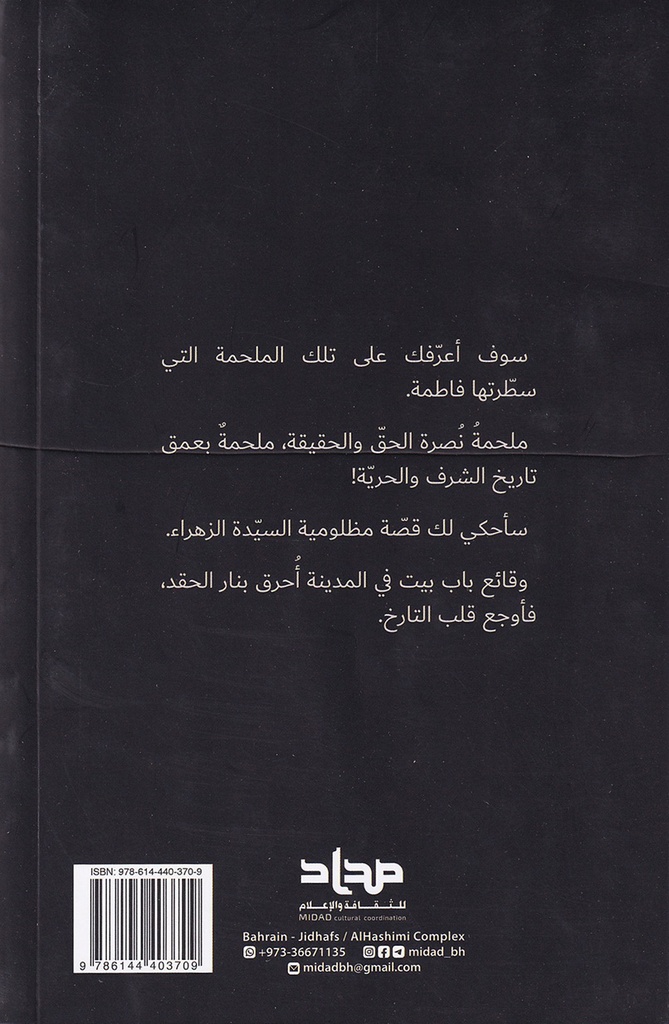 سوف أعرّفك على تلك الملحمة التي
سطّرتها فاطمة.
ملحمةُ نُصرة الحقّ والحقيقة، ملحمةٌ بعمق
تاريخ الشرف والحريّة!
سأحكي لك قصّة مظلومية السيّدة الزهراء.
وقائع باب بيت في المدينة أُحرق بنار الحقد،
فأوجع قلب التارخ.
مداد
للثقافة والإعلام
MIDAD cultural coordination
ISBN: 978-614-440-370-9
9 786144 403709
Bahrain - Jidhafs / AlHashimi Complex
+973-36671135 midad_bh
midadbh@gmail.com